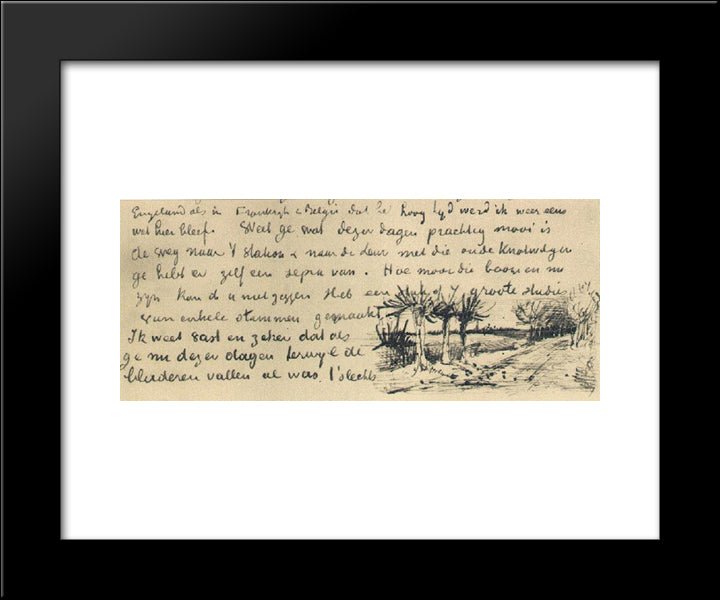 Engeland als in Frankrijk & Belgie dat het hoog tijd werd ik weer eens
wat hier bleef. Weet ge wat dezer dagen prachtig mooi is
de weg naar 't station & naar de Leur met die oude Knotwilgen
ge hebt er zelf een sepia van. Hoe mooi die boomen nu
zijn kan ik u niet zeggen Heb een stuk of 7 groote studies
van enkele stammen gemaakt
Ik weet vast en zeker dat als
ge nu dezer dagen terwijl de
bladeren vallen al was 't slechts